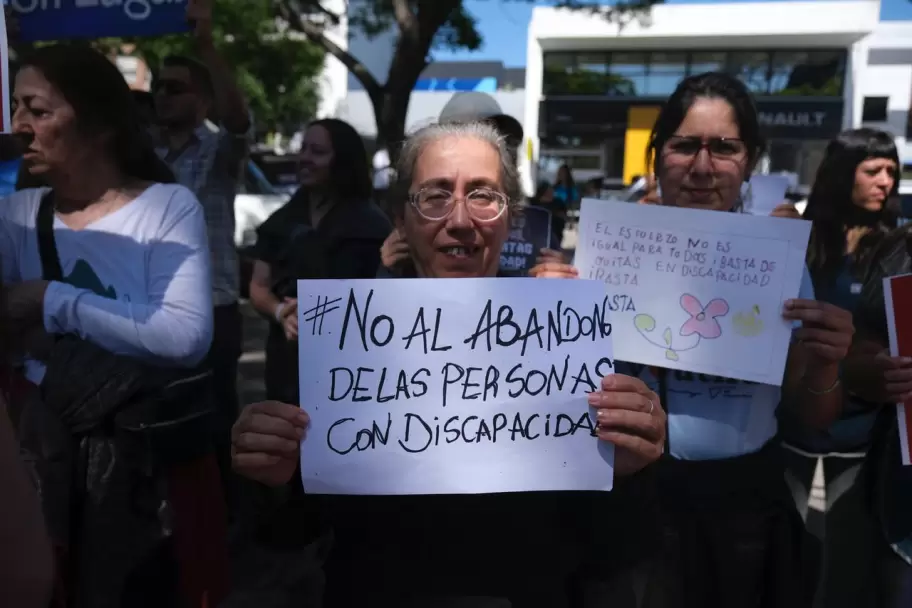 #NO AL ABANDONO
DE LAS PERSONAS
CON DISCAPACIDAD
EL ESFUERZO NO ES
IGUAL PARA TODOS ¡BASTA DE
QUITAS EN DISCAPACIDAD
¡BASTA
STA
NAULT